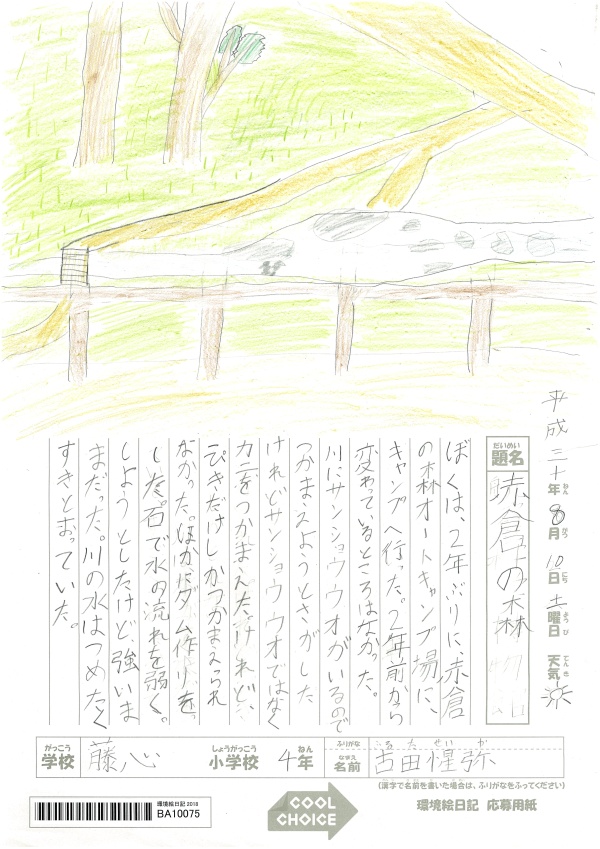 平成三十年8月10日土曜日 天気
ねん がつ にち ようび てんき
だいめい
題名
赤倉の森
ぼくは、2年ぶりに、赤倉
の森オートキャンプ場に、
キャンプへ行った。2年前から
変わっているところはなかった。
川にサンショウウオがいるので
つかまえようとさがした
けれどサンショウウオではなく
カニをつかまえた。けれど、一
ぴきだけしかつかまえられ
なかった。ほかにダム作りを
した。石で水の流れを弱く
しようとしたけど、強いま
まだった。川の水はつめたく
すきとおっていた。
がっこう
学校
藤心
しょうがっこう
小学校
4年
ねん
ふりがな
なまえ
名前
古田惺弥
(漢字で名前を書いた場合は、ふりがなをふってください)
環境絵日記2018
BA10075
COOL
CHOICE
環境絵日記 応募用紙